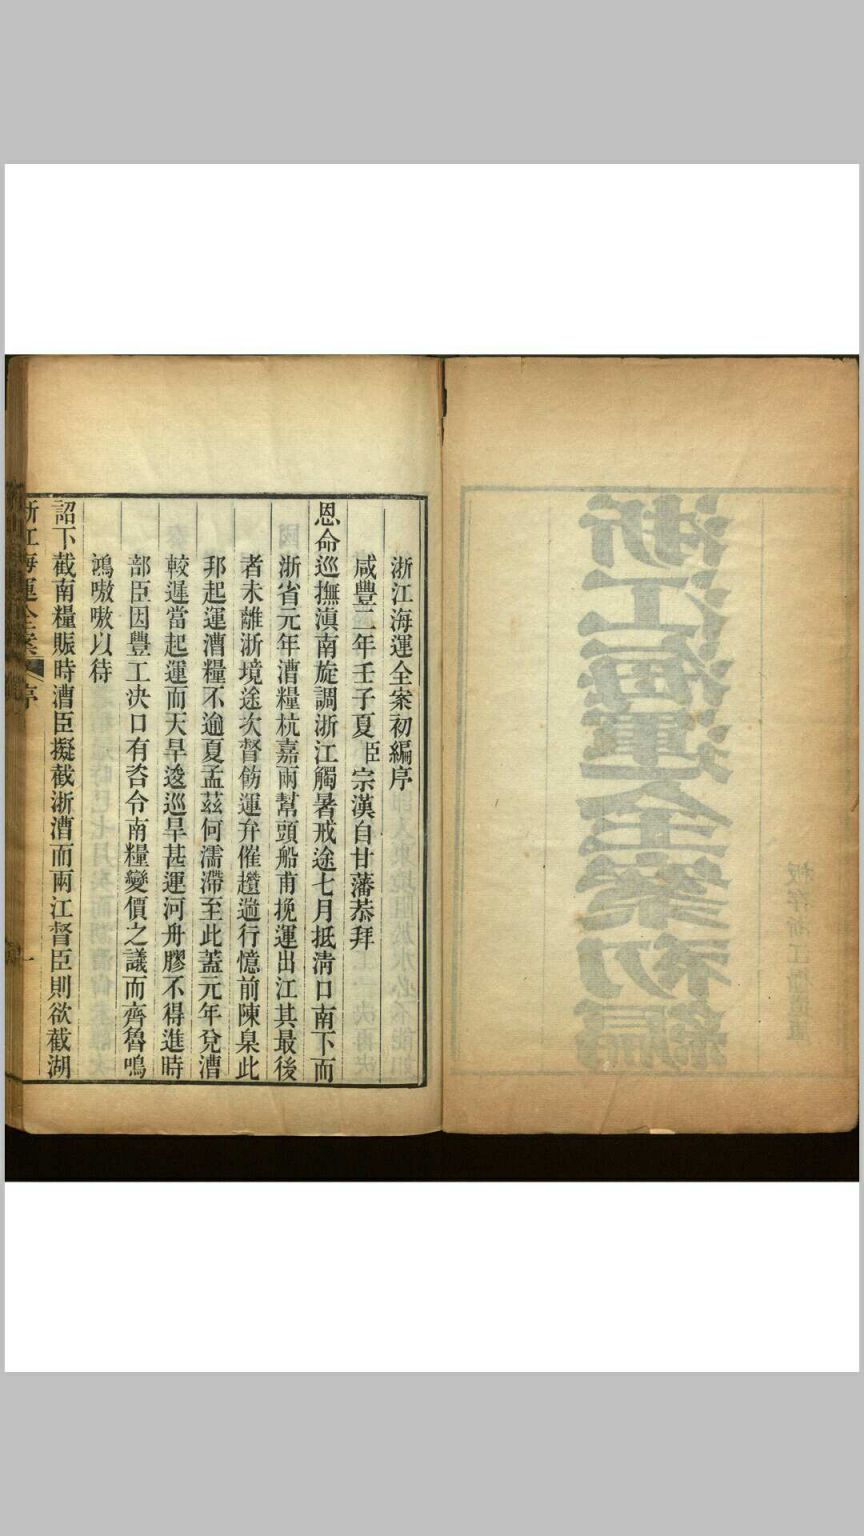 浙江海運全案初編
浙江海運全案初編序
咸豐二年壬子夏臣宗漢自甘藩恭拜
恩命巡撫滇南旋調浙江觸暑戒途七月抵淸口南下而
浙省元年漕糧杭嘉兩幫頭船甫挽運出江其最後
者未離浙境途次督飭運弁催趲遄行憶前陳臬此
邦起運漕糧不逾夏孟茲何濡滯至此蓋元年兌漕
較遲當起運而天旱逡巡旱甚運河舟膠不得進時
部臣因豐工决口有咨令南糧變價之議而齊魯鳴
鴻嗷嗷以待
詔下截南糧賑時漕臣擬截浙漕而兩江督臣則欲截湖
浙江海運全案 序 一